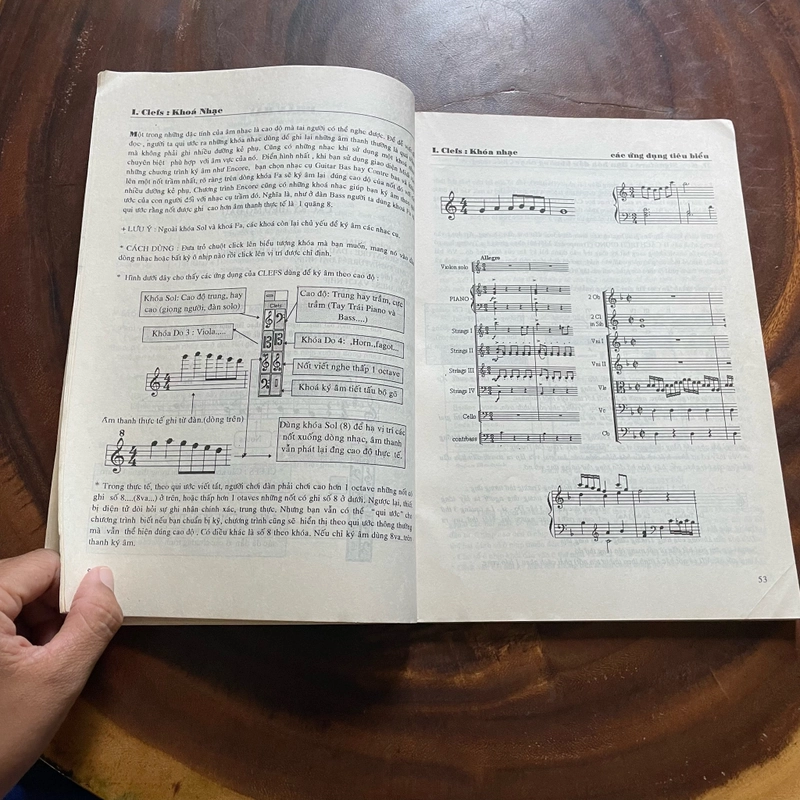 I. Clefs : Khoá Nhạc
Một trong những đặc tính của âm nhạc là cao độ mà tai người có thể nghe được. Để dễ
đọc, người ta qui ước ra những khóa nhạc dùng để ghi lại những âm thanh thường là
mà không phải ghi nhiều dường kẻ phụ. Cũng có những nhạc khi sử dụng một khoá
chuyên biệt phù hợp với âm vực của nó. Điển hình nhất, khi bạn sử dụng giao diện
những chương trình ký âm như Encore, bạn chọn nhạc cụ Guitar Bas hay Contre bas và
lên một nốt trầm nhất, rõ ràng trên dòng khóa Fa sẽ ký âm lại đúng cao độ của nốt đó
nhiều dường kẻ phụ. Chương trình Encore cũng có những khoá nhạc giúp bạn ký âm
ước của con người đối với nhạc cụ trầm đó. Nghĩa là, như ở đàn Bass người ta dùng khoá
qui ước rằng nốt được ghi cao hơn âm thanh thực tế là 1 quãng 8.
+ LƯU Ý : Ngoài khóa Sol và khoá Fa, các khoá còn lại chủ yếu để ký âm các nhạc cụ.
* CÁCH DÙNG : Đưa trỏ chuột click lên biểu tượng khóa mà bạn muốn, mang nó vào
dòng nhạc hoặc bất kỳ ô nhịp nào rồi click lên vị trí được chỉ định.
* Hình dưới đây cho thấy các ứng dụng của CLEFS dùng để ký âm theo cao độ :
Khóa Sol: Cao độ trung, hay
cao (giọng người, đàn solo)
Clefs
Cao độ: Trung hay trầm, cực
trầm (Tay Trái Piano và
Bass....)
Khóa Do 3 : Viola.....
Khóa Do 4: ,Horn.,fagot,..
Nốt viết nghe thấp 1 octave
Khoá ký âm tiết tấu bộ gõ
Âm thanh thực tế ghi từ đàn.(dòng trên)
8
Dùng khóa Sol (8) để hạ vị trí các
nốt xuống dòng nhạc, âm thanh
vẫn phát lại đng cao độ thực tế.
* Trong thực tế, theo qui ước viết tắt, người chơi đàn phải chơi cao hơn 1 octave những nốt có
ghi số 8....(8va...) ở trên, hoặc thấp hơn 1 otaves những nốt có ghi số 8 ở dưới. Ngược lại, thiết
bị điện tử đòi hỏi sự ghi nhân chính xác, trung thực. Nhưng bạn vẫn có thể "qui ước" cho
chương trình biết nếu bạn chuẩn bị kỹ, chương trình cũng sẽ hiển thị theo qui ước thông thường
mà vẫn thể hiện đúng cao độ. Có điều khác là số 8 theo khóa. Nếu chỉ ký âm dùng 8va..trên
thanh ký âm.
I. Clefs : Khóa nhạc
các ứng dụng tiêu biểu
Allegro
Violon solo
PIANO
Strings I
Strings II
Strings III
Strings IV
Cello
contrbass
2 Ob
2 Cl
in Sib
Vni I
Vni II
Vle
Vc
Cb
53